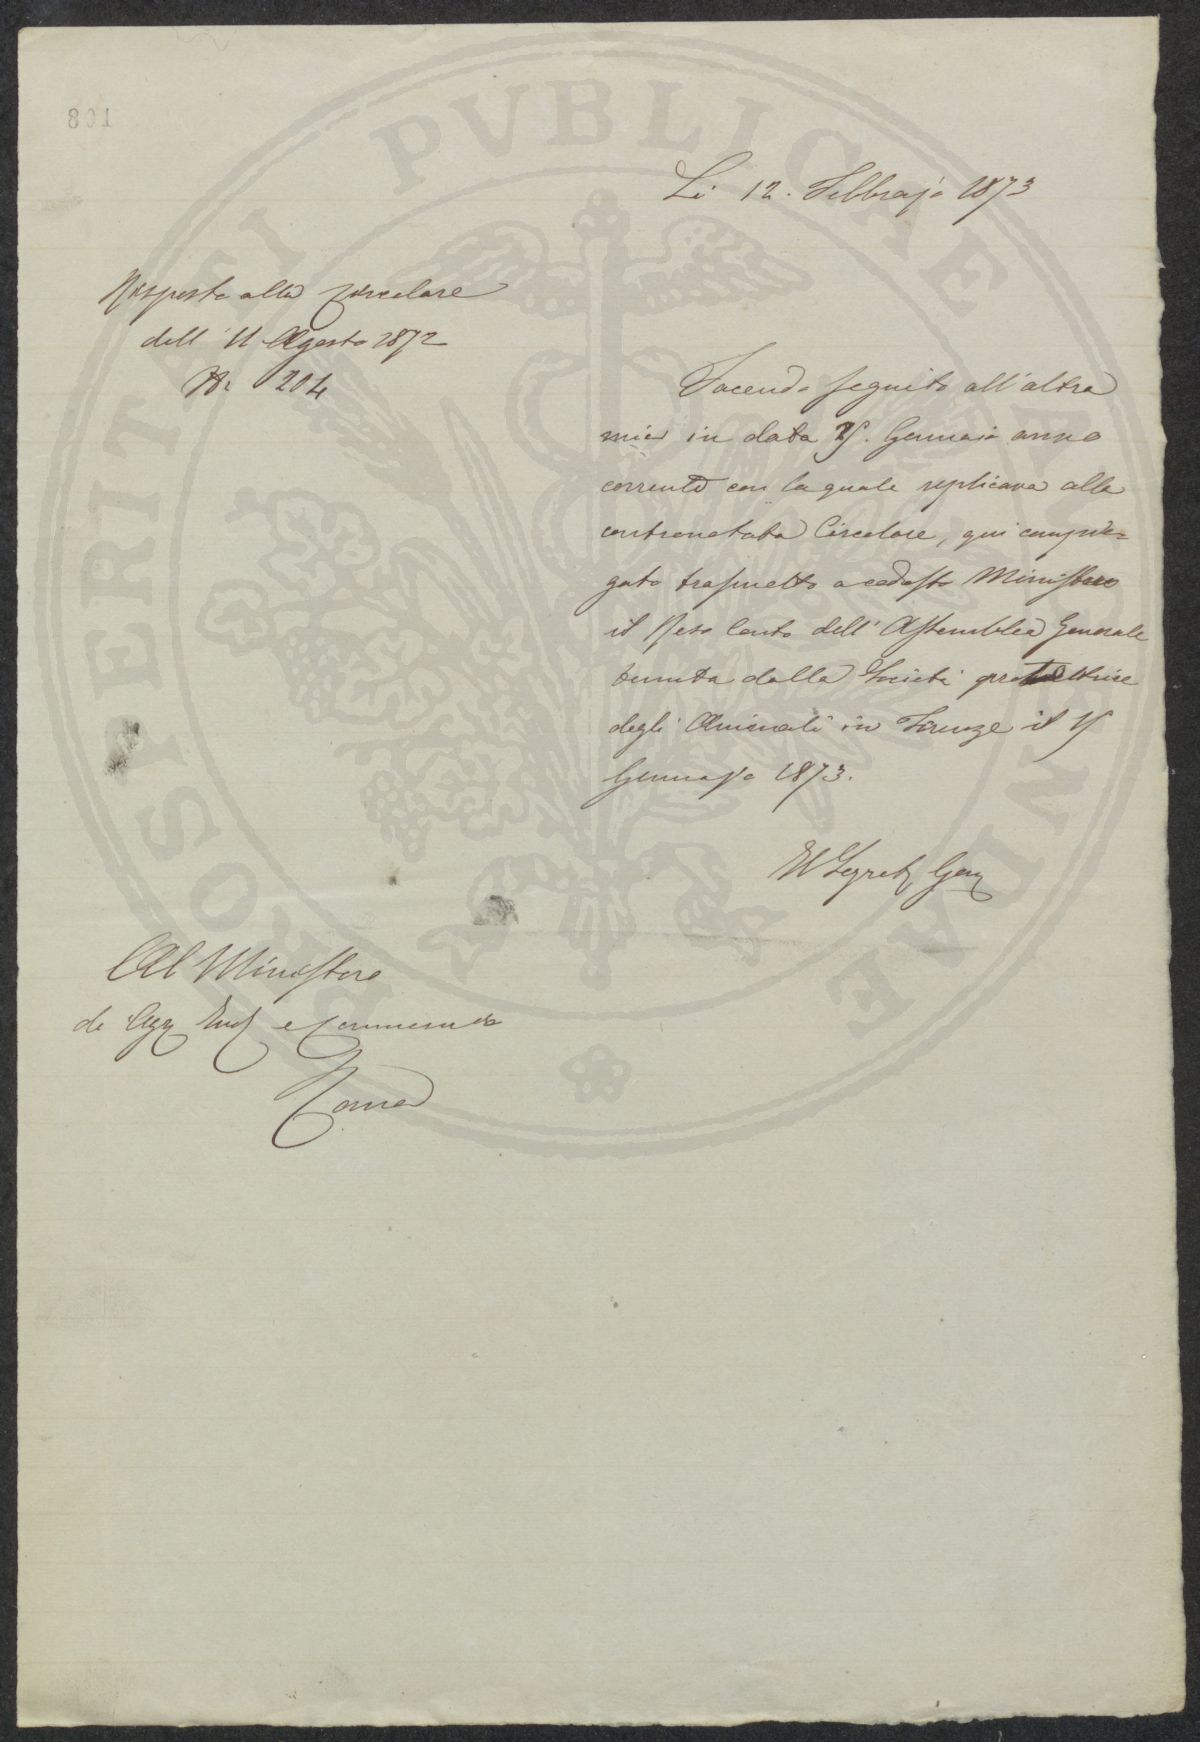 Li 12. Febbrajo 1873
Risposta alla circolare
dell' 11 Agosto 1872
N. 204
Facendo seguito all'altra
mia in data Gennaio anno
corrente con la quale replicava alla
contronotata Circolare, qui compie-
gato trasmetto a codesto Ministero
il Reso Conto dell' Assemblea Generale
tenuta dalla Società protettrice
degli Animali in Firenze il
Gennajo 1873.
Il Segret Gen
Al Ministero
di Agr Ind e Commercio
Roma
PROSPERITATI PVBLICAE AVGENDAE